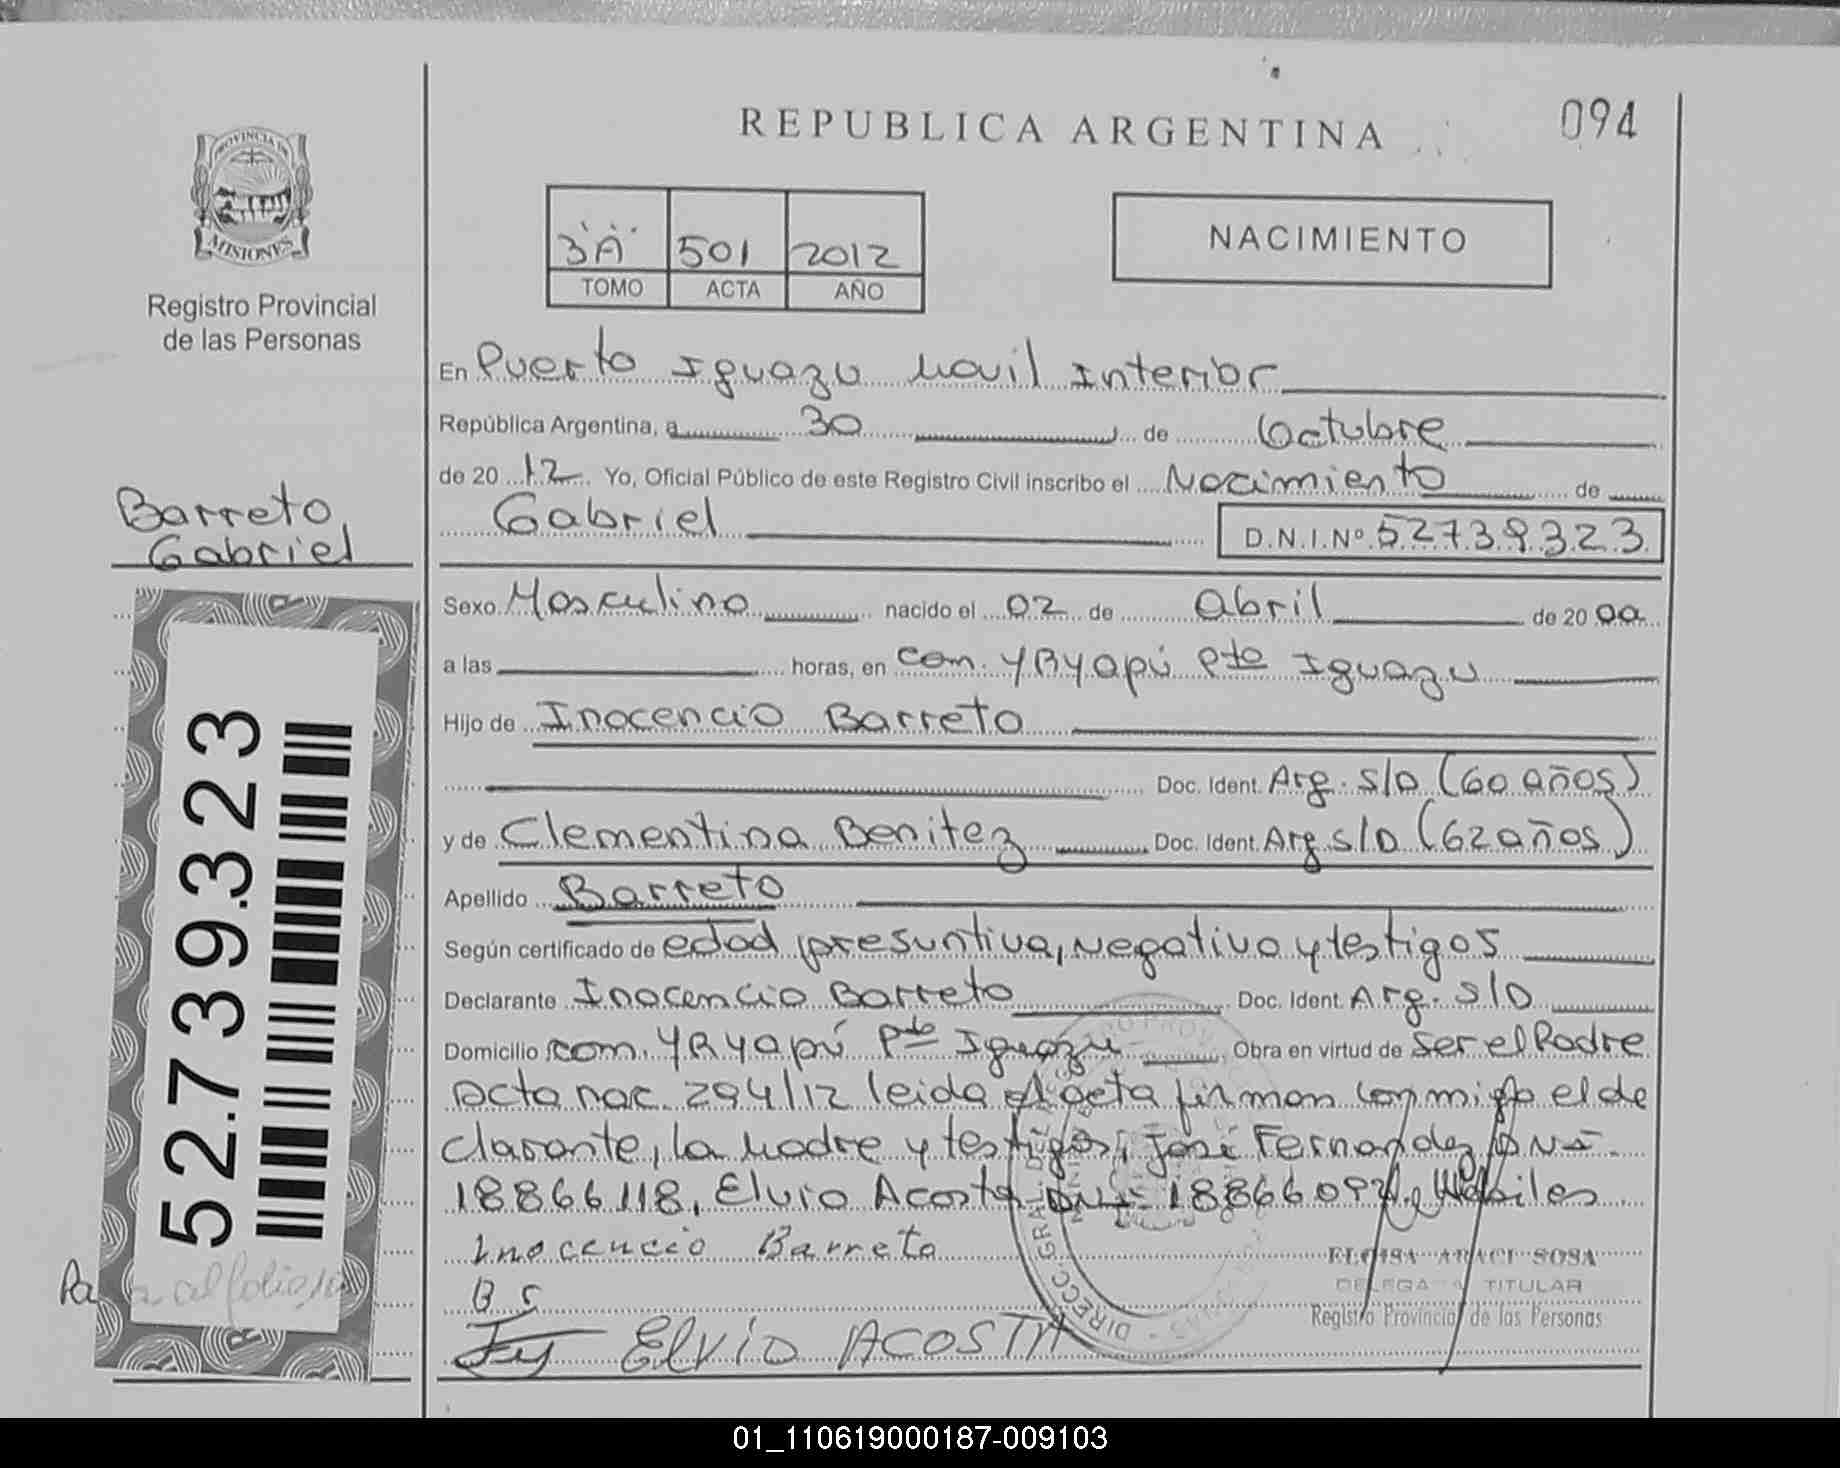 REPUBLICA ARGENTINA
094
PROVINCIA DE
MISIONES
Registro Provincial
de las Personas
3"A" 501 2012
TOMO ACTA AÑO
NACIMIENTO
En Puerto Iguazu Movil Interior
República Argentina, a 30 de Octubre
de 20 12 Yo, Oficial Público de este Registro Civil inscribo el Nacimiento de
Gabriel D.N.I.Nº 52739323
Barreto,
Gabriel
Sexo Masculino nacido el 02 de Abril de 20 00
a las horas, en Com. YRyapú Pto Iguazu
Hijo de Inocencio Barreto
Doc. Ident. Arg. S/D (60 años)
y de Clementina Benitez Doc. Ident. Arg S/D (62 años)
Apellido Barreto
Según certificado de edad presuntiva, negativo y testigos
Declarante Inocencio Barreto Doc. Ident. Arg. S/D
Domicilio com. YRyapú Pto Iguazu Obra en virtud de Ser el Padre
acta nac. 294/12 leida el acta firman conmigo el de
clarante, la Madre y testigos, José Fernandez DNI
18866118, Elvio Acosta DNI 1886609 Habiles
Inocencio Barreto
B C
ELVIO ACOSTA
ELOISA ARACI SOSA
DELEGADA TITULAR
Registro Provincial de las Personas
52.739.323
Pasa al folio
01_110619000187-009103